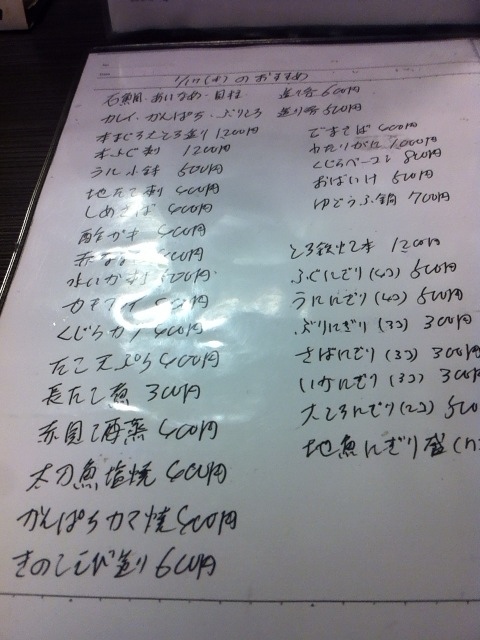 1/17(木)のおすすめ
石鯛・あいなめ・貝柱 造り各600円
カレイ・かんぱち・ぶりとろ 造り各500円
本まぐろ大とろ造り 1200円
本ふぐ刺 1200円
うに小鉢 500円
地たこ刺 400円
しめさば 400円
酢がき 400円
水いか
くじらカツ 400円
たこ天ぷら 400円
長たこ煮 300円
赤貝酒蒸 400円
太刀魚塩焼 400円
かんぱちカマ焼 400円
きのえび造り 600円
わたりがに 1000円
くじらベーコン 800円
おばいけ 500円
ゆどうふ鍋 700円
とろ鉄火 1本 1200円
ふぐにぎり(4コ) 500円
うににぎり(4コ) 500円
ぶりにぎり(3コ) 300円
さばにぎり(3コ) 300円
いかにぎり(3コ) 300円
大とろにぎり(2コ) 500
地魚にぎり盛